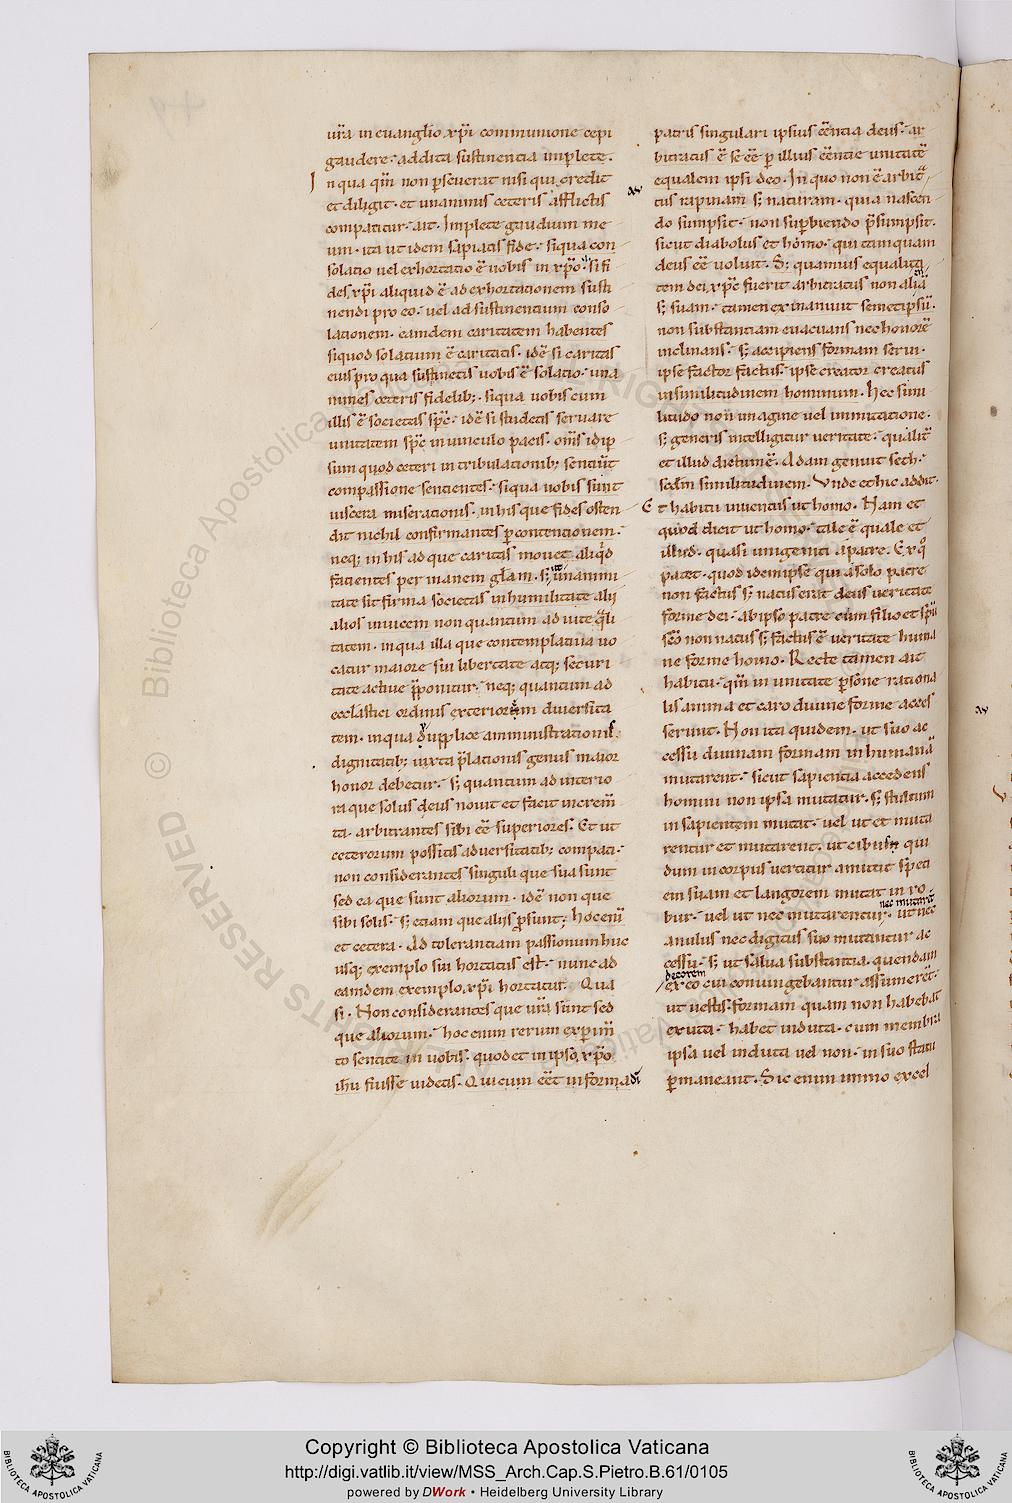 ur̄a in euangl̄io xp̄i communione cepi
gaudere· addita sustinencia implete.
In qua qm̄ non perseuerat nisi qui credit
et diligit· et unanimus ceteris afflictis
compatitur· ait. Implete gaudium me
um· ita ut idem sapiatis fide· siqua con
solatio uel exhortatio ē uobis in xp̄o· si fi
des xp̄i aliquid ē ad exhortationem susti
nendi pro eo· uel ad sustinentium conso
lationem· eamdem caritatem habentes
siquod solatium ē caritatis· idē si caritas
eius pro qua sustinetis uobis ē solatio· una
nimes ceteris fidelib;· siqua uobis cum
illis ē societas sp̄c· idē si studetis seruare
unitatem sp̄c in uinculo pacis· om̄s idip
sum quod ceteri in tribulationib; sentiūt
compassione sentientes· siqua uobis sunt
uiscera miserationis· in his que fides osten
dit nichil confirmantes p̱ contencionem·
neq; in his ad que caritas mouet aliq̇d
facientes per inanem glām· s; ut unanimi
tate sit firma societas in humilitate alij
alios inuicem non quantum ad uite q̄li
tatem· in qua illa que contemplatiua uo
catur maiore sui libertate atq; securi
tate actiue p̄ponitur· neq; quantum ad
ecclastici ordinis exteriorem diuersita
tem· in qua duplice amministrationis
dignitatib; iuxta p̄lationis genus maior
honor debetur· s; quantum ad interio
ra que solus deus nouit et facit increm̄
ta· arbitrantes sibi eē superiores. Et ut
ceterorum possitis aduersitatib; compati·
non considerantes singuli que sua sunt
sed ea que sunt aliorum· idē non que
sibi solis· s; etiam que alijs p̱sunt; hoc enī
et cetera· Ad tolerantiam passionum huc
usq; exemplo sui hortatus est· nunc ad
eamdem exemplo xp̄i hortatur. Qua
si· Non considerantes que ur̄a sunt sed
que aliorum· hoc enim rerum exp̱im̄
to sentite in uobis· quod et in ipso xp̄o
ih̄u fuisse uidetis· Qui cum eēt in forma di
patris singulari ipsius eēntia deus· ar
bitratus ē se eē p̱ illius eēntie unitatē
equalem ipsi deo· In quo non ē arbitᵃ
tus rapinam s; naturam· quia nascen
do sumpsit· non sup̱biendo p̄sumpsit·
sicut diabolus et homo· qui tamquam
deus eē uoluit. S; quamuis equalita
tem dei xp̄c fuerit arbitratus non aliā
s; suam· tamen exinaniuit semetipsū·
non substantiam euacuans nec honorē
inclinans· s; accipiens formam serui·
ipse factor factus· ipse creator creatus
in similitudinem hominum· Hec simi
litudo non imagine uel immitatione·
s; generis intelligitur ueritate· qualit̄
et illud dictum ē· Adam genuit seth·
scdm̄ similitudinem· Vnde et hic addit·
Et habitu inuentus ut homo· Nam et
quod dicit ut homo· tale ē quale et
illud· quasi unigeniti a patre. Ex q°
patet· quod idem ipse qui a solo patre
non factus s; natus erat deus ueritate
forme dei· ab ipso patre cum filio et sp̄u
sc̄o non natus s; factus ē ueritate huma
ne forme homo· Recte tamen ait
habitu· qm̄ in unitate p̱sone rationa
lis anima et caro diuine forme acces
serunt· Non ita quidem· ut suo ac
cessu diuinam formam in humanā
mutarent· sicut sapientia accedens
homini non ipsa mutatur· s; stultum
in sapientem mutat· uel ut et muta
rentur et mutarent· ut cibus qui
dum in corpus uertitur amittit speti
em suam et langorem mutat in ro
nec mutarēt
bur· uel ut nec mutarentur· ut nec
anulus nec digitus suo mutantur ac
cessu· s; ut salua substantia· quendam
decorem
ex eo cui coniungebantur assumerēt·
ut uestis· formam quam non habebat
exuta· habet induta· cum membra
ipsa uel induta uel non· in suo statu
p̱maneant. Sic enim immo excel
Copyright © Biblioteca Apostolica Vaticana
http://digi.vatlib.it/view/MSS_Arch.Cap.S.Pietro.B.61/0105
powered by DWork • Heidelberg University Library